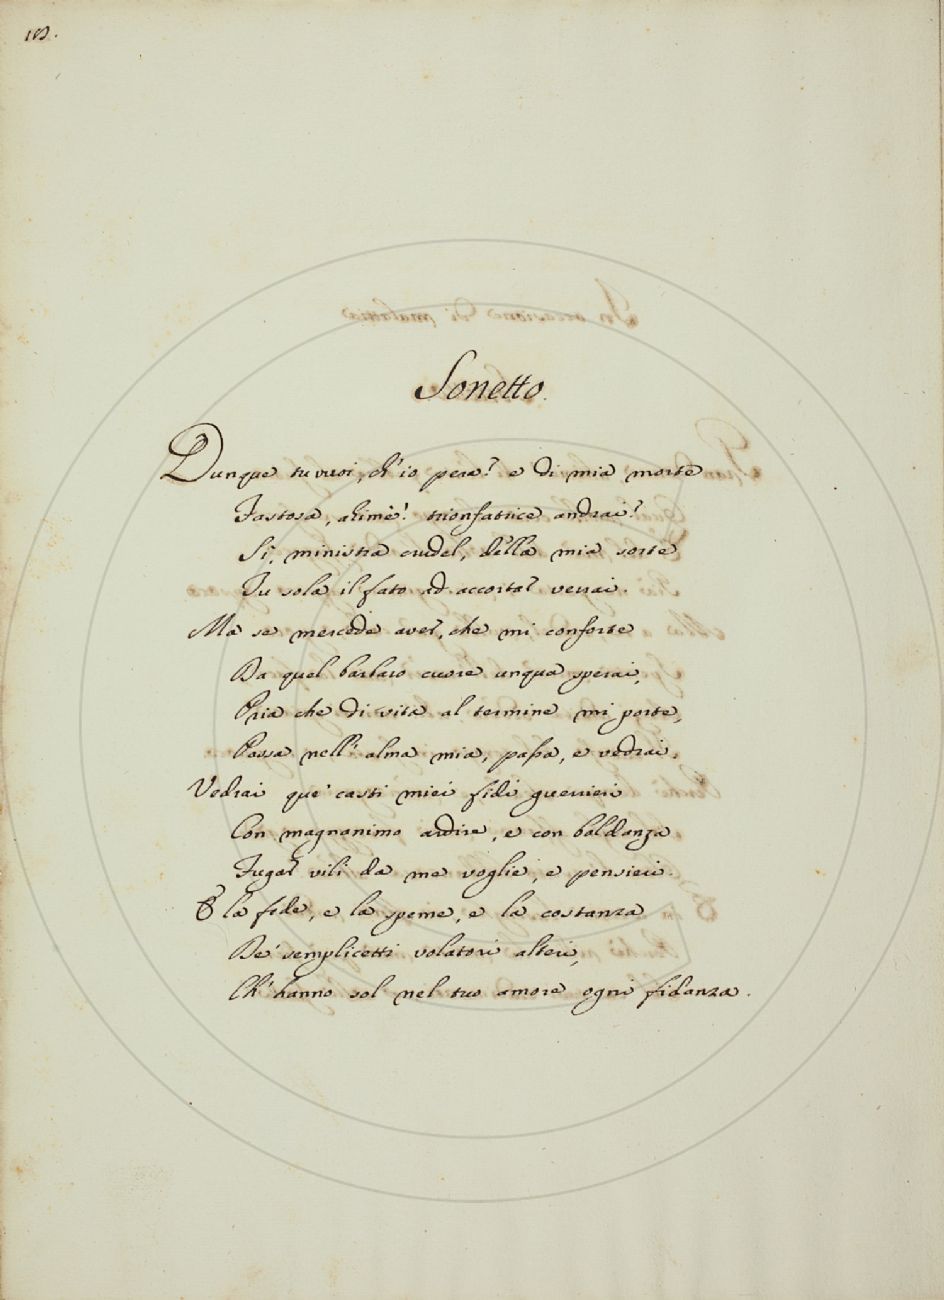 Sonetto.
Dunque tu vuoi, ch'io pera? e di mia morte
Fastosa, ahimè! trionfatrice andrai?
Sì, ministra crudel, della mia sorte
Tu sola il fato ad accortar verrai.
Ma se mercede aver, che mi conforte
Da quel barbaro cuore unqua sperai,
Pria che di vita al termine mi porte,
Passa nell'alma mia, passa, e vedrai.
Vedrai que' casti miei fidi guerrieri
Con magnanimo ardire, e con baldanza
Fugar vili da me voglie, e pensieri.
E la fede, e la speme, e la costanza
De' semplicetti volatori alteri,
Ch'hanno sol nel tuo amore ogni fidanza.